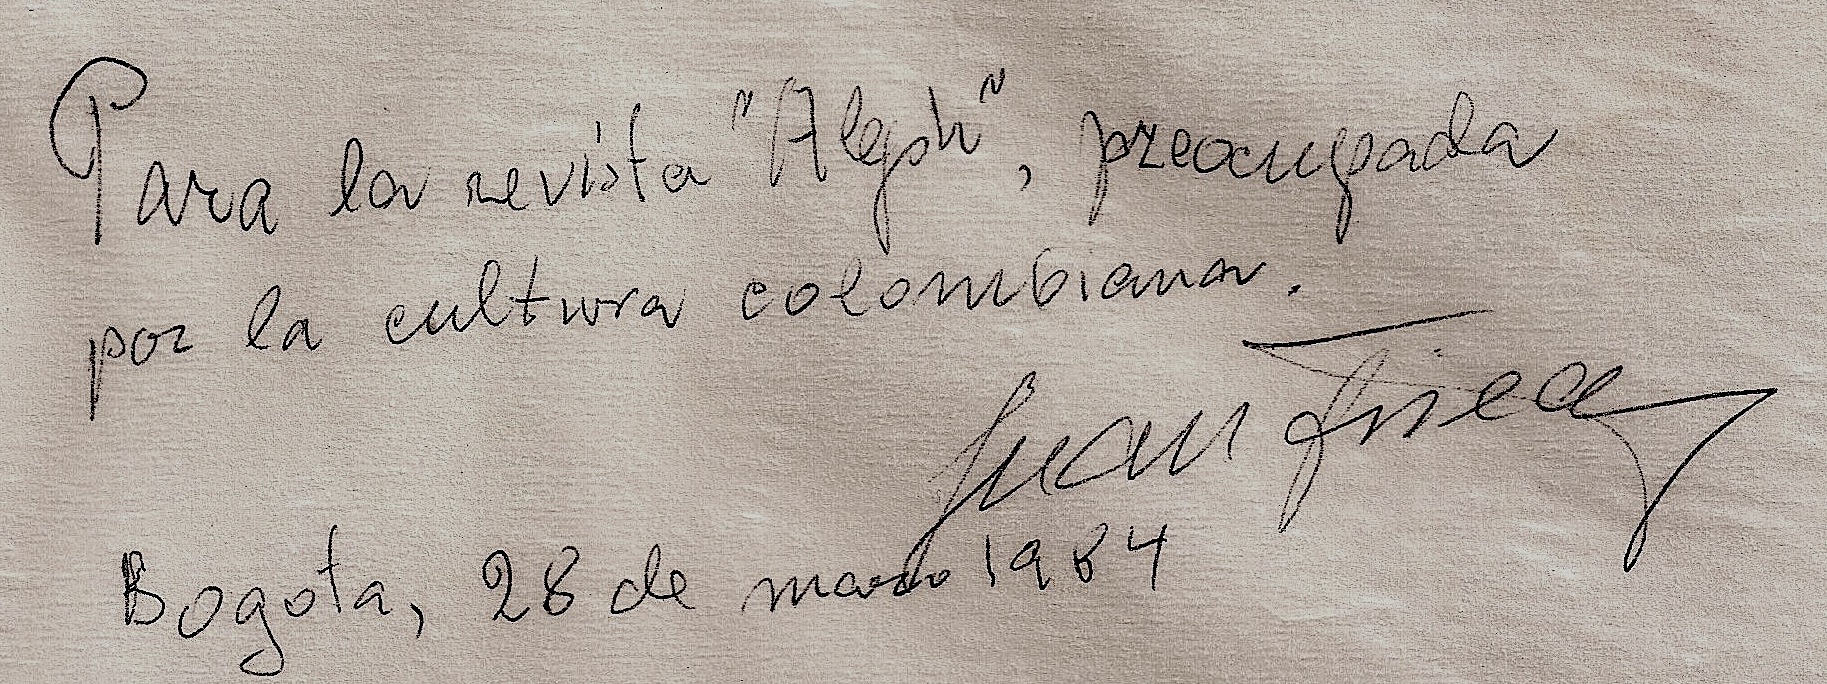 Para la revista "Aleph", preocupada
por la cultura colombiana.
Juan Friede
Bogota, 28 de marzo 1984